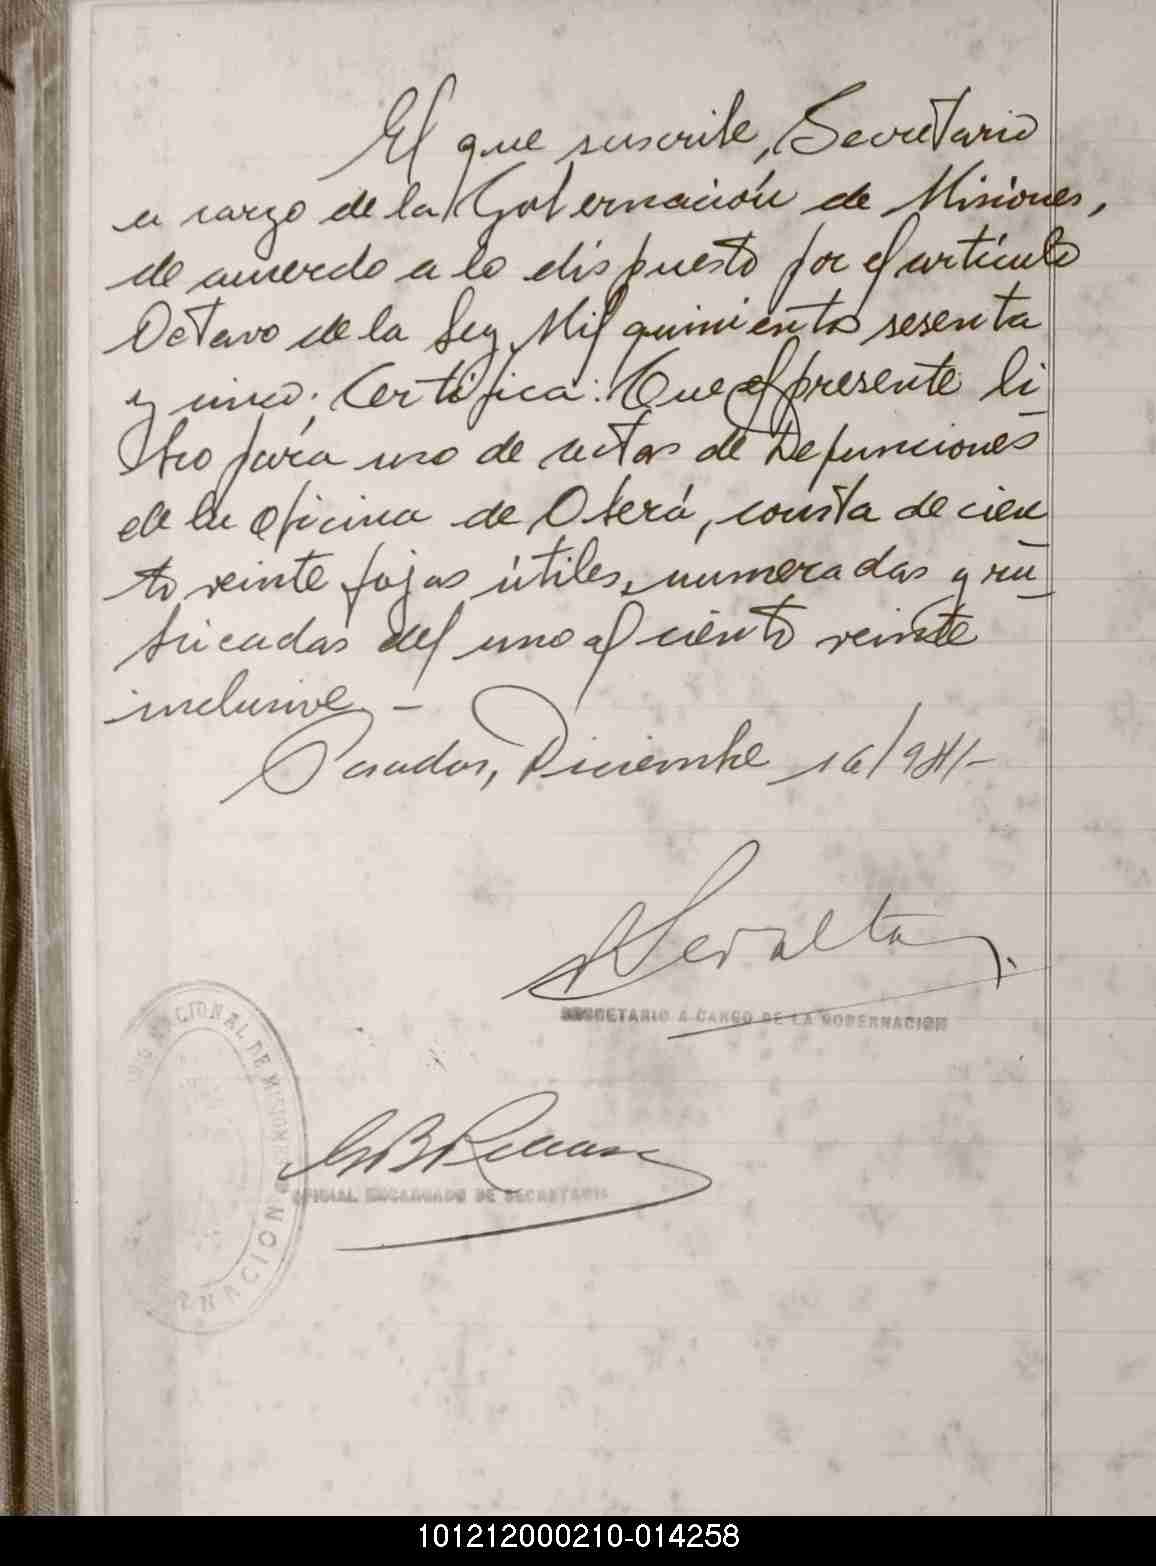 El que suscribe, Secretario
a cargo de la Gobernación de Misiones,
de acuerdo a lo dispuesto por el artículo
Octavo de la Ley Mil quinientos sesenta
y cinco; Certifica: Que el presente li
bro para uso de actas de Defunciones
de la oficina de Oberá, consta de cien
to veinte fojas útiles, numeradas y ru
bricadas del uno al ciento veinte
inclusive. -
Posadas, Diciembre 16/941-
SECRETARIO A CARGO DE LA GOBERNACION
NACIONAL DE MISIONES
OFICIAL ENCARGADO DE SECRETARIA
101212000210-014258